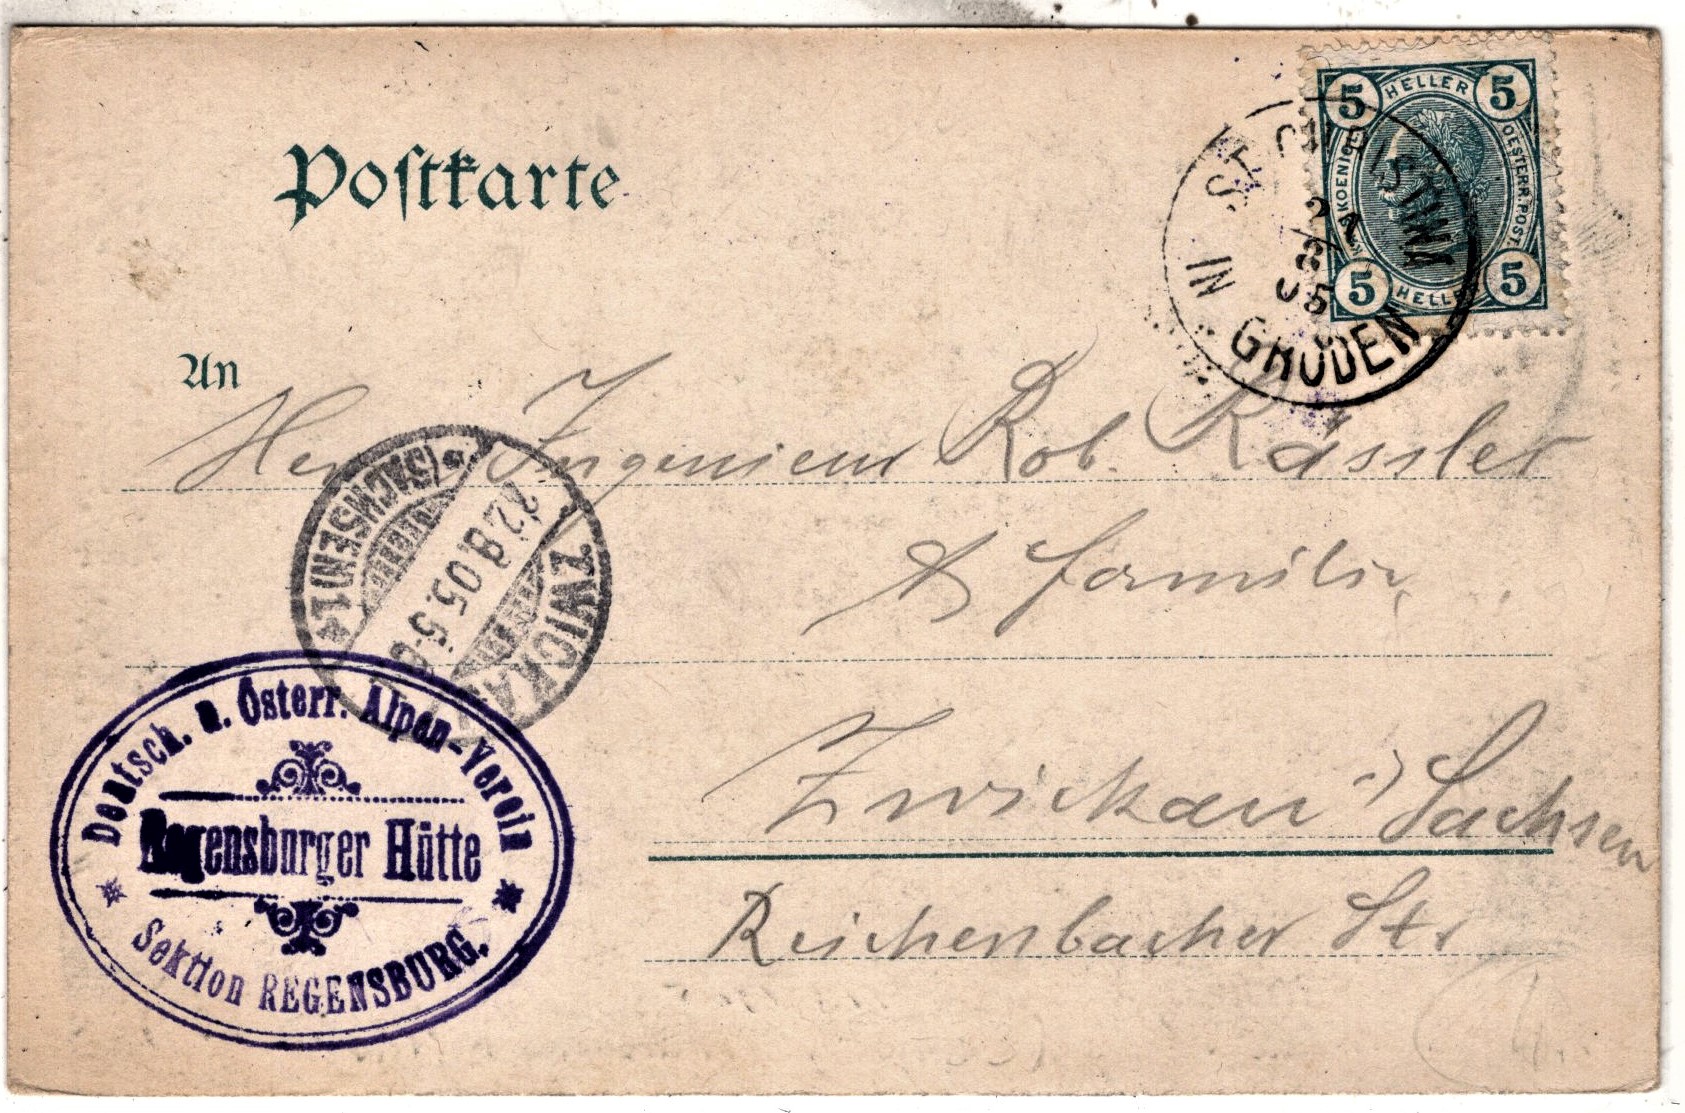 Postkarte
5 HELLER 5
KOENIG
OESTERR. POST.
5 HELLER 5
ST. CHRISTINA
21
8
05
IN GRÖDEN
An
Herr Ingenieur Rob. Rässler
& Familie
Zwickau i/ Sachsen
Reichenbacher Str
ZWICKAU
(SACHSEN) 1.
22.8.05. 5-6
Deutsch. u. Österr. Alpen-Verein
Regensburger Hütte
Sektion REGENSBURG.